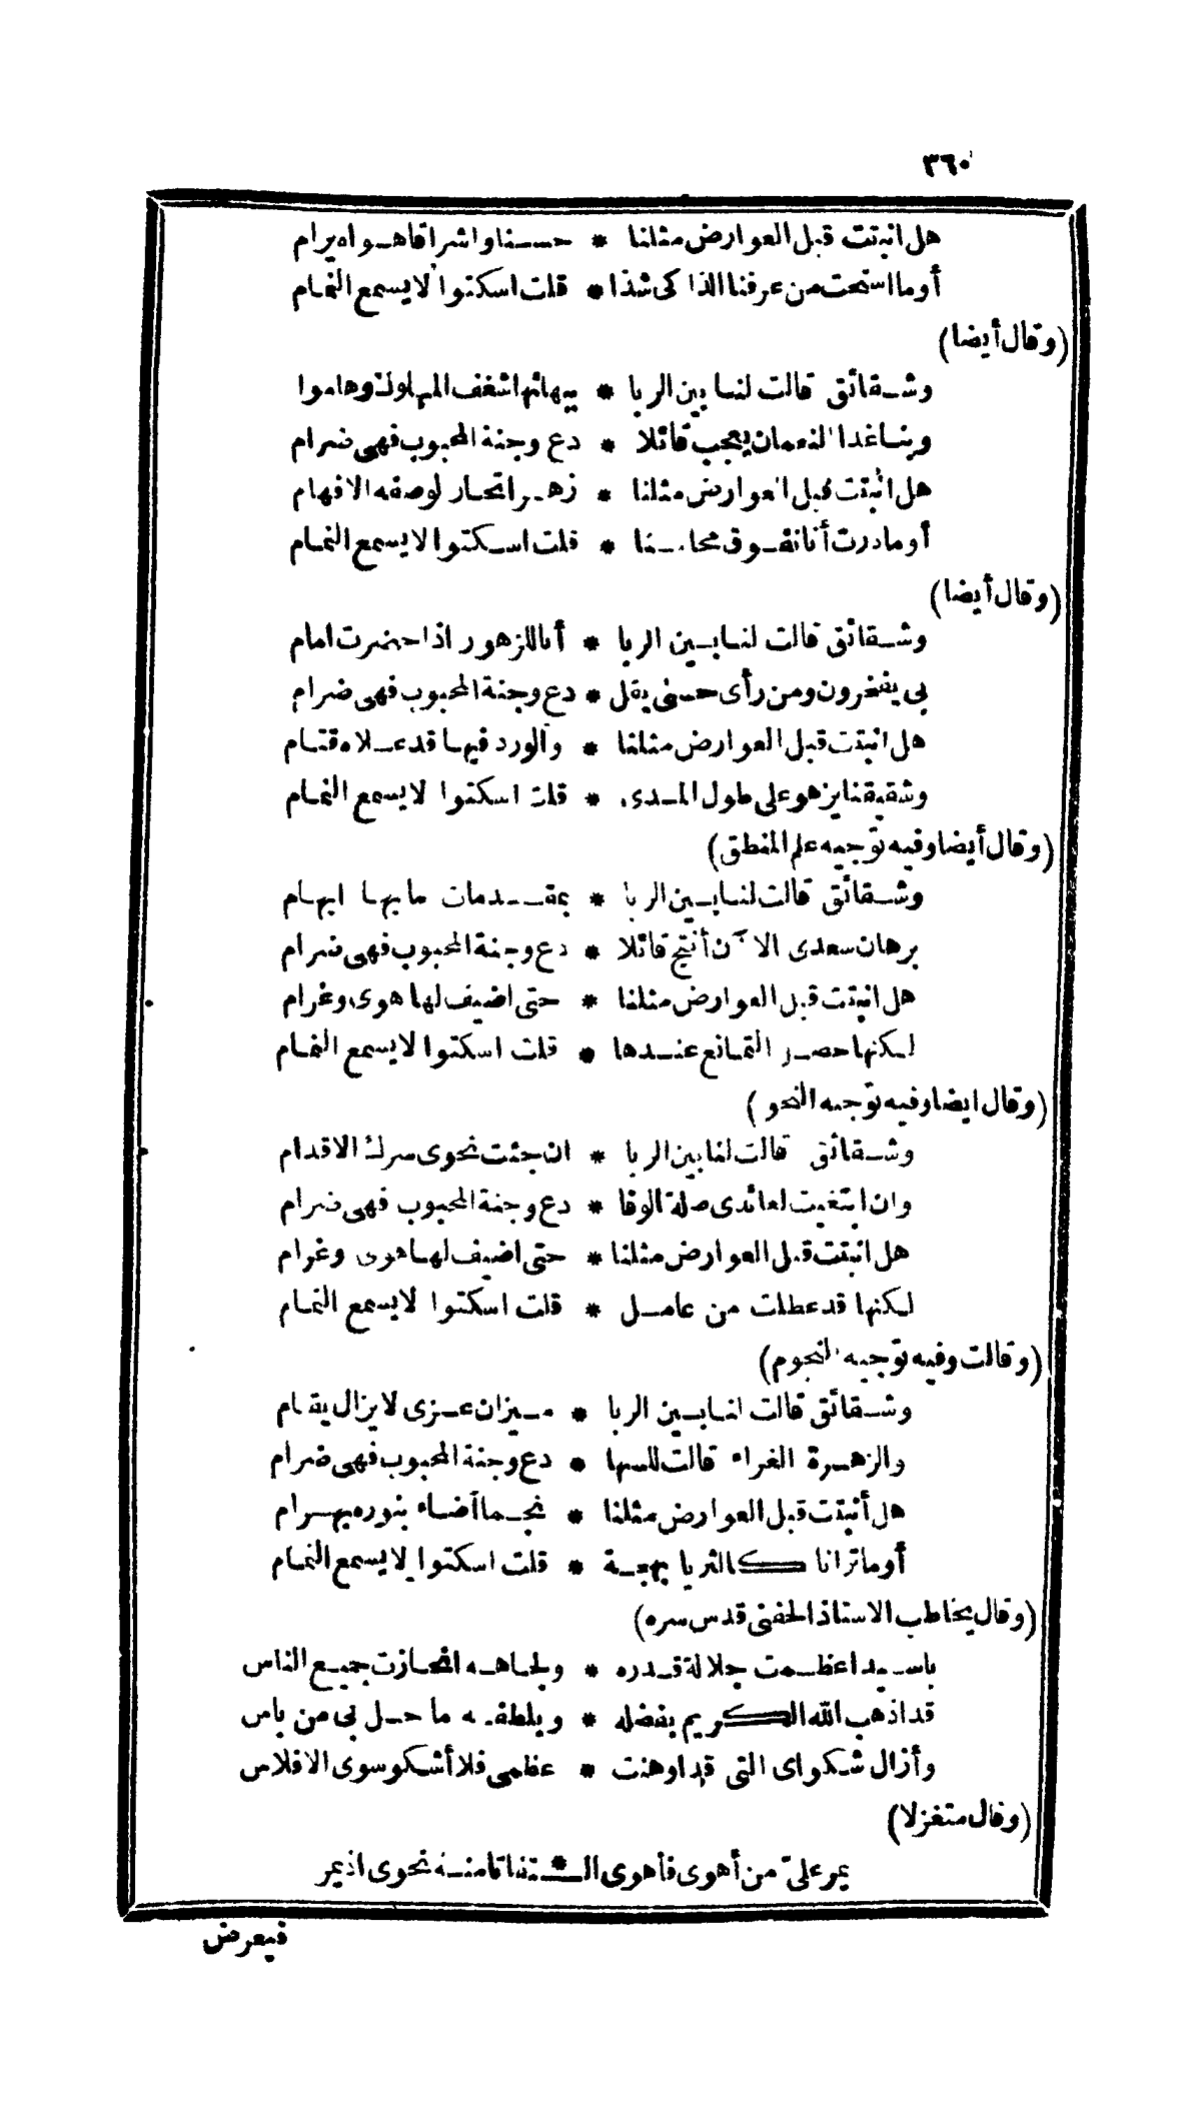 ٣٦٠
هل انبتت قبل العوارض مثلنا * حسنا واشراقا هواه يرام
أوما استحت من عرفنا الذاكى شذا * قلت اسكتوا لا يسمع النمام
(وقال أيضا)
وشقائق قالت لنا بين الربا * ببهائها شغف الملوك وهاموا
وبنا غدا النعمان يعجب قائلا * دع وجنة المحبوب فهى ضرام
هل انبتت قبل العوارض مثلنا * زهرا تحار لوصفه الافهام
أوما درت أنا نفوق محاسنا * قلت اسكتوا لا يسمع النمام
(وقال أيضا)
وشقائق قالت لنا بين الربا * أنا للزهور اذا حضرت امام
بى يفخرون ومن رأى حسنى يقل * دع وجنة المحبوب فهى ضرام
هل انبتت قبل العوارض مثلنا * والورد فيها قد علاه قتام
وشقيقنا يزهو على طول المدى * قلت اسكتوا لا يسمع النمام
(وقال أيضا وفيه توجيه علم المنطق)
وشقائق قالت لنا بين الربا * بمقدمات ما بها ابهام
برهان سعدى الآن أنتج قائلا * دع وجنة المحبوب فهى ضرام
هل انبتت قبل العوارض مثلنا * حتى اضيف لها هوى وغرام
لكنها حصر التمانع عندها * قلت اسكتوا لا يسمع النمام
(وقال ايضا وفيه توجيه النحو)
وشقائق قالت لنا بين الربا * ان جئت نحوى سرك الاقدام
وان ابتغيت لعائدى صلة الوفا * دع وجنة المحبوب فهى ضرام
هل انبتت قبل العوارض مثلنا * حتى اضيف لها هوى وغرام
لكنها قد عطلت من عامل * قلت اسكتوا لا يسمع النمام
(وقالت وفيه توجيه النجوم)
وشقائق قالت لنا بين الربا * ميزان عزى لا يزال يقام
والزهرة الغراء قالت للسها * دع وجنة المحبوب فهى ضرام
هل أنبتت قبل العوارض مثلنا * نجما أضاء بنوره بهرام
أوما ترانا كالثريا بهجة * قلت اسكتوا لا يسمع النمام
(وقال يخاطب الاستاذ الحفنى قدس سره)
ياسيدا عظمت جلالة قدره * ولجاهه انحازت جميع الناس
قد اذهب الله الكريم بفضله * وبلطفه ما حل بى من باس
وأزال شكواى التى قد اوهنت * عظمى فلا أشكو سوى الافلاس
(وقال متغزلا)
يمر علىّ من أهوى فأهوى الـ * تفاتا منه نحوى اذ يمر
فيعرض